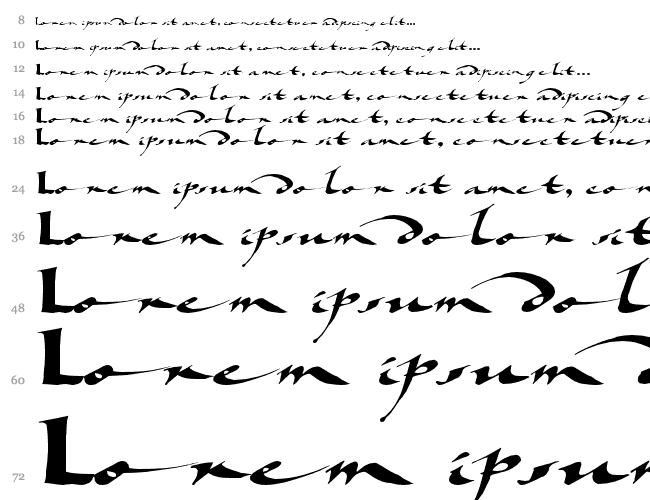 8 Lorem ipsum dolor sit amet, consectetuer adipiscing elit...
10 Lorem ipsum dolor sit amet, consectetuer adipiscing elit...
12 Lorem ipsum dolor sit amet, consectetuer adipiscing elit...
14 Lorem ipsum dolor sit amet, consectetuer adipiscing e
16 Lorem ipsum dolor sit amet, consectetuer adipisci
18 Lorem ipsum dolor sit amet, consectetuer
24 Lorem ipsum dolor sit amet, con
36 Lorem ipsum dolor sit
48 Lorem ipsum dol
60 Lorem ipsum d
72 Lorem ipsum